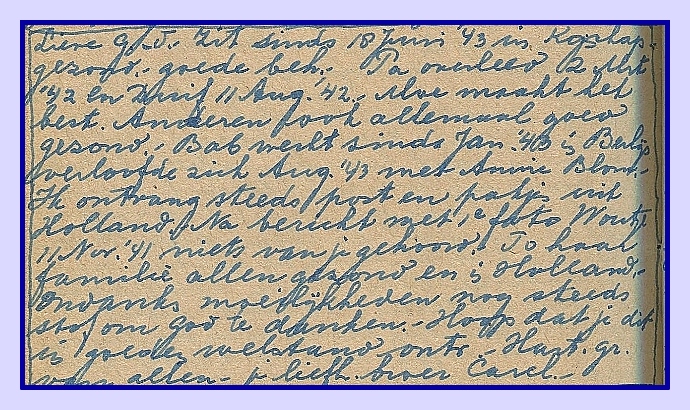 Lieve G.-J. Zit sinds 18 Juni '43 in
gezond,- goede ben.- Pa overleed 2 Mrt
'42 en 11 Aug. '42.- Moe maakt het
best. Anderen ook allemaal goed
gezond.- Bab werkt sinds Jan. '43 in Berlijn
verloofde zich Aug. '43 met Annie Blom.-
Ik ontvang steeds post en pakjes uit
Holland. Na bericht met 1e foto
11 Nov. '41 niets van je gehoord. To haar
familie allen gezond en in Holland.-
Ondanks moeilijkheden nog steeds
stof om God te danken.- Hoop dat je dit
in goeden welstand ontv.- Hart. gr.
van allen - je liefh. broer Carel.-